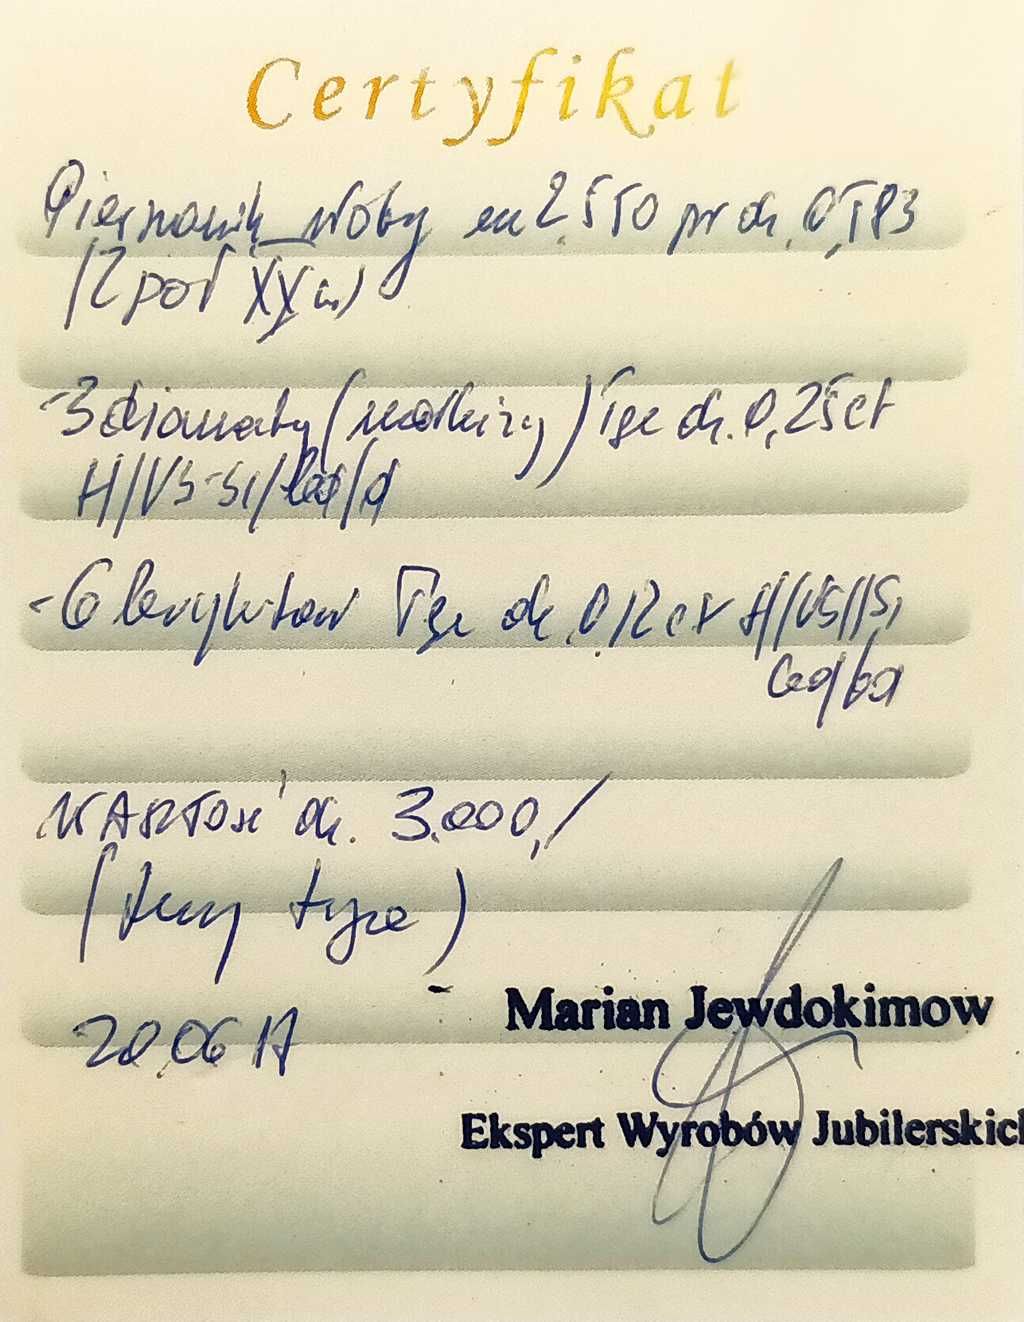 Certyfikat
Pierścionek złoty m 2.550 pr ok. 0,583
(2 poł XX w)
-3 diamenty (markizy) Tge ok. 0,25ct
H//VS-SI/
-6 brylantów Tge ok. 0,12 ct H//VS//SI
Wartość ok. 3.000,/
(trzy tysące)
20.06 17
Marian Jewdokimow
Ekspert Wyrobów Jubilerskich